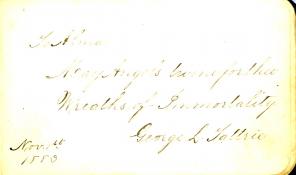 To Alma
May Angels twine for thee
Wreaths of Immortality
George L
Nov. 1st
1883